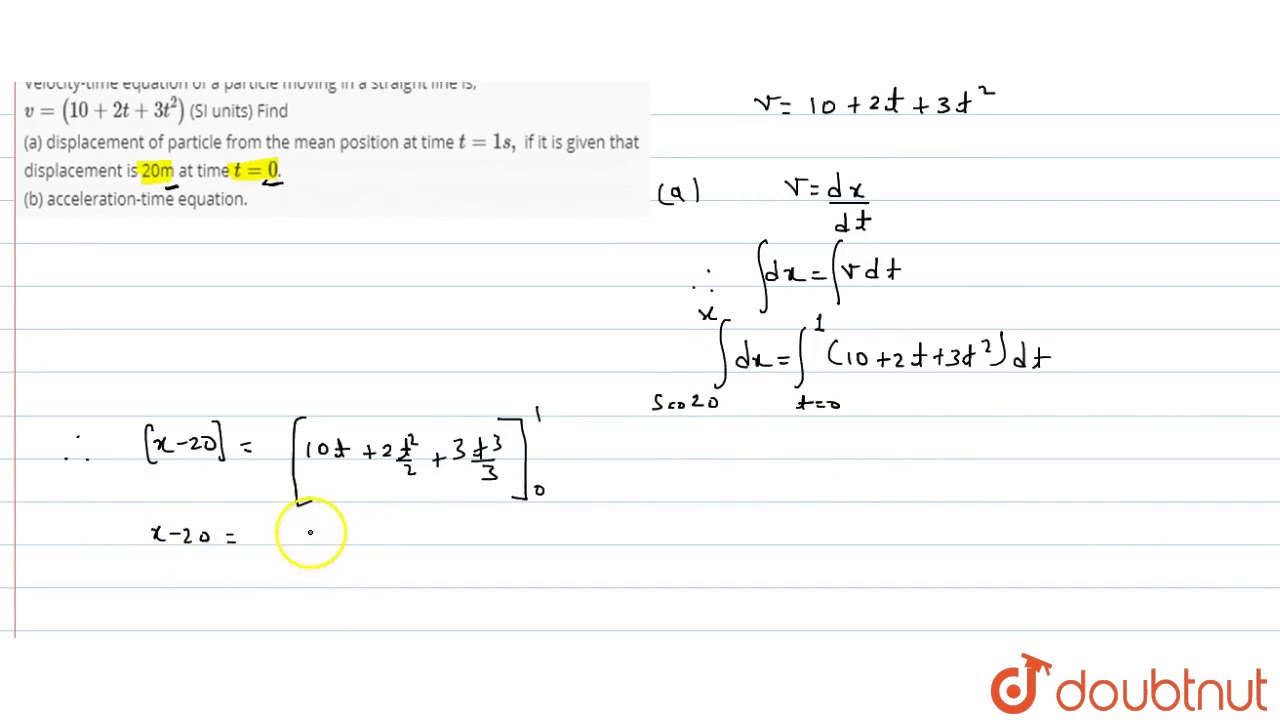 Velocity-time equation of a particle moving in a straight line is,
v = (10 + 2t + 3t²) (SI units) Find
(a) displacement of particle from the mean position at time t = 1s, if it is given that
displacement is 20m at time t = 0.
(b) acceleration-time equation.
v = 10 + 2t + 3t²
(a) v = dx/dt
∴ ∫dx = ∫v dt
∫_{s=20}^{x} dx = ∫_{t=0}^{1} (10 + 2t + 3t²) dt
∴ [x-20] = [10t + 2t²/2 + 3t³/3]_0^1
x-20 =
doubtnut